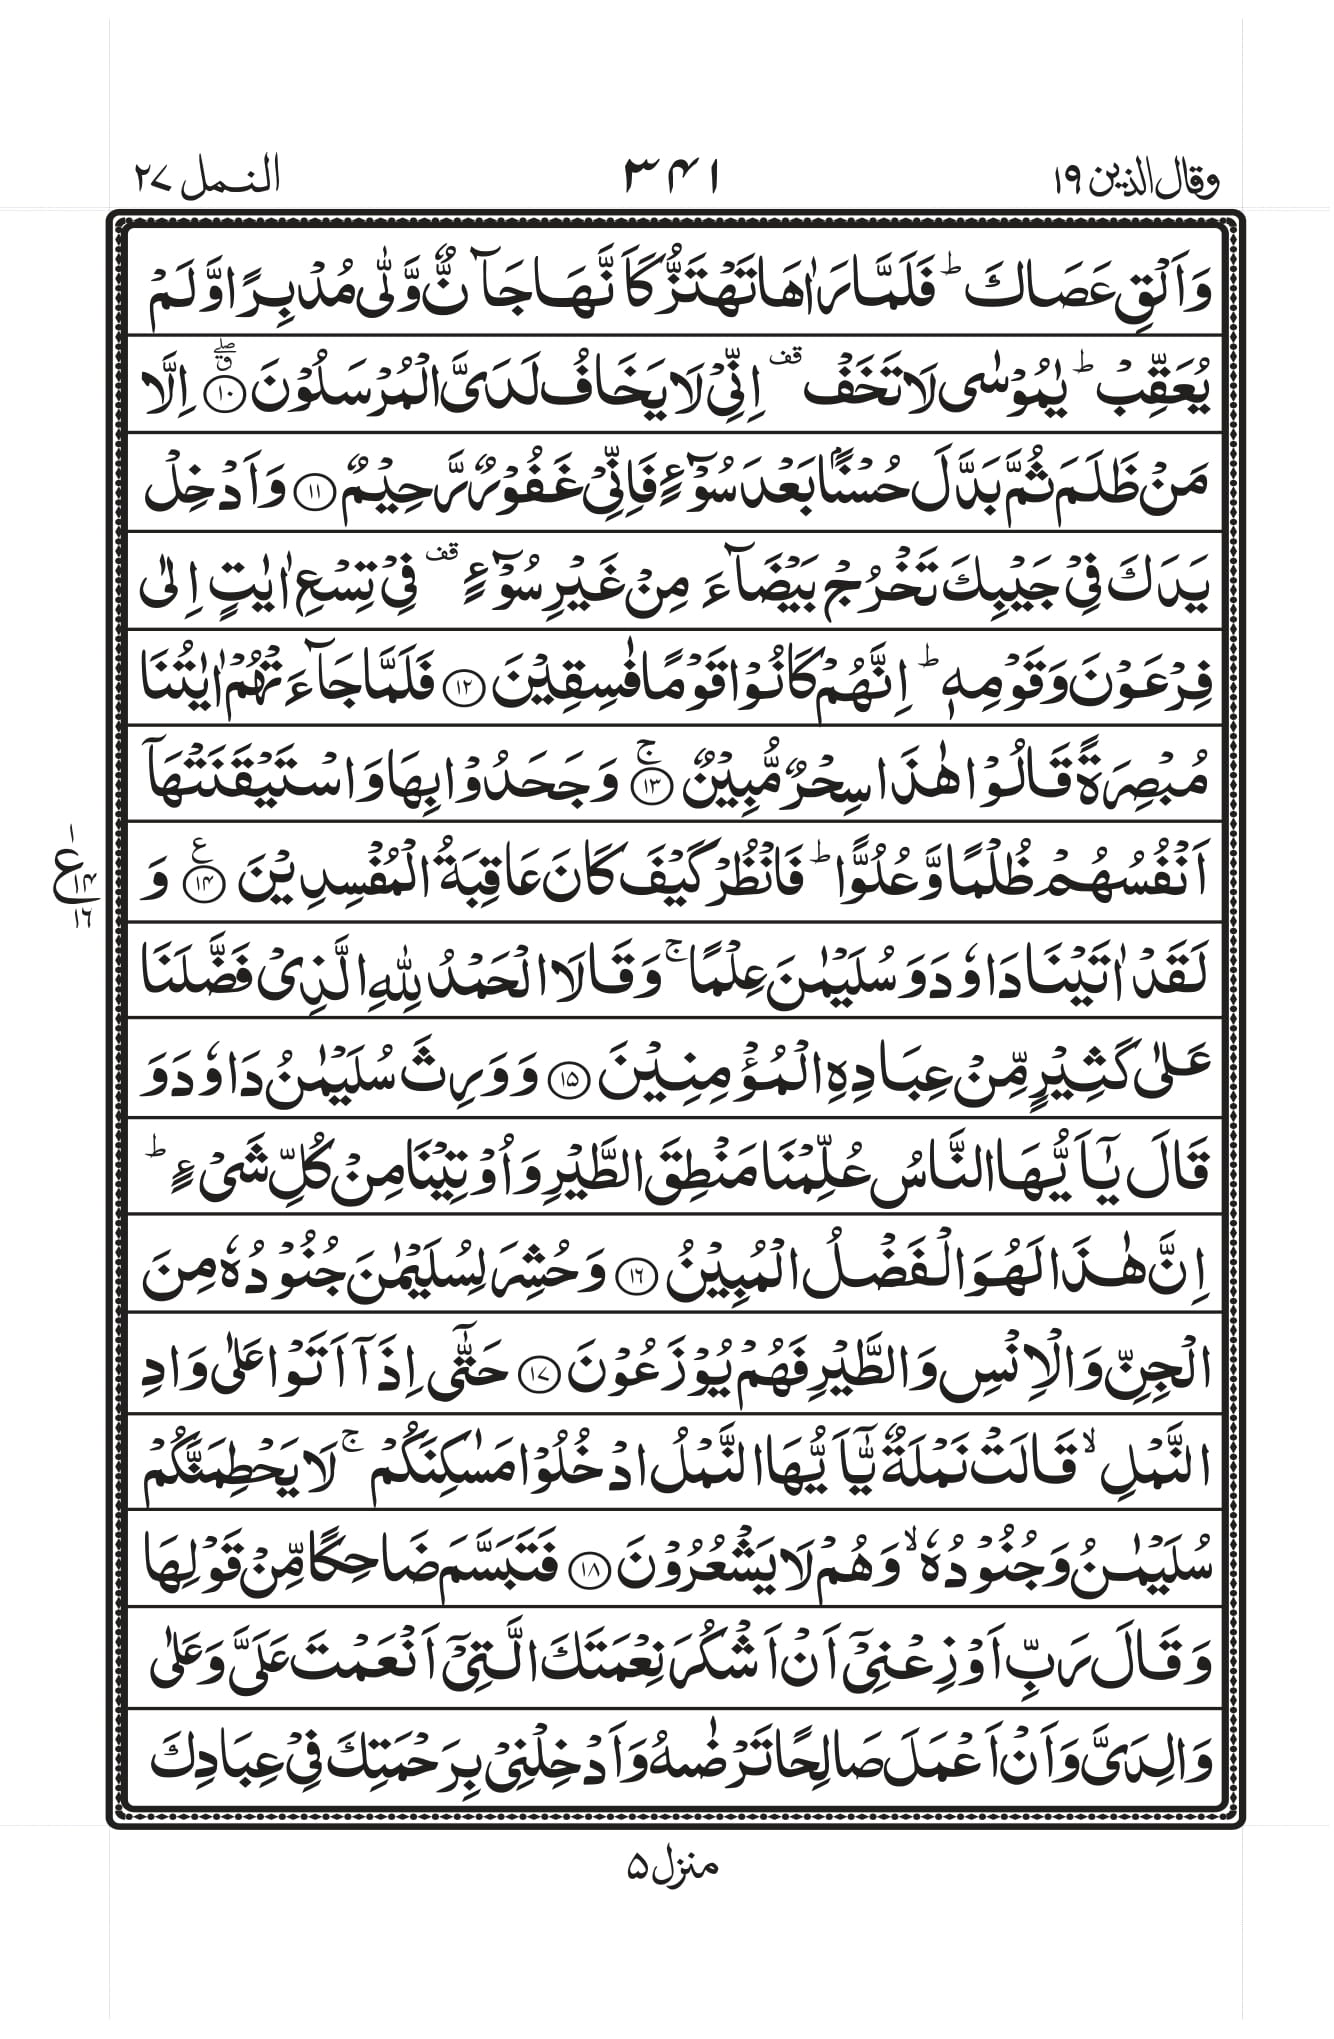 وقال الذين ١٩
٣٤١
النمل ٢٧
وَاَلۡقِ عَصَاكَ ؕ فَلَمَّا رَاٰهَا تَهۡتَزُّ كَاَنَّهَا جَآنٌّ وَّلّٰى مُدۡبِرًا وَّلَمۡ
يُعَقِّبۡ ؕ يٰمُوۡسٰى لَا تَخَفۡ قف اِنِّىۡ لَا يَخَافُ لَدَىَّ الۡمُرۡسَلُوۡنَ ۖق ﴿۱۰﴾ اِلَّا
مَنۡ ظَلَمَ ثُمَّ بَدَّلَ حُسۡنًۢا بَعۡدَ سُوۡٓءٍ فَاِنِّىۡ غَفُوۡرٌ رَّحِيۡمٌ ﴿۱۱﴾ وَاَدۡخِلۡ
يَدَكَ فِىۡ جَيۡبِكَ تَخۡرُجۡ بَيۡضَآءَ مِنۡ غَيۡرِ سُوۡٓءٍ قف فِىۡ تِسۡعِ اٰيٰتٍ اِلٰى
فِرۡعَوۡنَ وَقَوۡمِهٖ ؕ اِنَّهُمۡ كَانُوۡا قَوۡمًا فٰسِقِيۡنَ ﴿۱۲﴾ فَلَمَّا جَآءَتۡهُمۡ اٰيٰتُنَا
مُبۡصِرَةً قَالُوۡا هٰذَا سِحۡرٌ مُّبِيۡنٌ ۚ ﴿۱۳﴾ وَجَحَدُوۡا بِهَا وَاسۡتَيۡقَنَتۡهَاۤ
اَنۡفُسُهُمۡ ظُلۡمًا وَّعُلُوًّا ؕ فَانْظُرۡ كَيۡفَ كَانَ عَاقِبَةُ الۡمُفۡسِدِيۡنَ ع ﴿۱۴﴾ وَ
ع ١ ١٤ ١٦
لَقَدۡ اٰتَيۡنَا دَاوٗدَ وَسُلَيۡمٰنَ عِلۡمًا ۚ وَقَالَا الۡحَمۡدُ لِلّٰهِ الَّذِىۡ فَضَّلَنَا
عَلٰى كَثِيۡرٍ مِّنۡ عِبَادِهِ الۡمُؤۡمِنِيۡنَ ﴿۱۵﴾ وَوَرِثَ سُلَيۡمٰنُ دَاوٗدَ وَ
قَالَ يٰۤاَيُّهَا النَّاسُ عُلِّمۡنَا مَنۡطِقَ الطَّيۡرِ وَاُوۡتِيۡنَا مِنۡ كُلِّ شَىۡءٍ ؕ
اِنَّ هٰذَا لَهُوَ الۡفَضۡلُ الۡمُبِيۡنُ ﴿۱۶﴾ وَحُشِرَ لِسُلَيۡمٰنَ جُنُوۡدُهٗ مِنَ
الۡجِنِّ وَالۡاِنۡسِ وَالطَّيۡرِ فَهُمۡ يُوۡزَعُوۡنَ ﴿۱۷﴾ حَتّٰٓى اِذَاۤ اَتَوۡا عَلٰى وَادِ
النَّمۡلِ ۙ قَالَتۡ نَمۡلَةٌ يّٰۤاَيُّهَا النَّمۡلُ ادۡخُلُوۡا مَسٰكِنَكُمۡ ۚ لَا يَحۡطِمَنَّكُمۡ
سُلَيۡمٰنُ وَجُنُوۡدُهٗ ۙ وَهُمۡ لَا يَشۡعُرُوۡنَ ﴿۱۸﴾ فَتَبَسَّمَ ضَاحِكًا مِّنۡ قَوۡلِهَا
وَقَالَ رَبِّ اَوۡزِعۡنِىۡۤ اَنۡ اَشۡكُرَ نِعۡمَتَكَ الَّتِىۡۤ اَنۡعَمۡتَ عَلَىَّ وَعَلٰى
وَالِدَىَّ وَاَنۡ اَعۡمَلَ صَالِحًا تَرۡضٰٮهُ وَاَدۡخِلۡنِىۡ بِرَحۡمَتِكَ فِىۡ عِبَادِكَ
منزل ٥